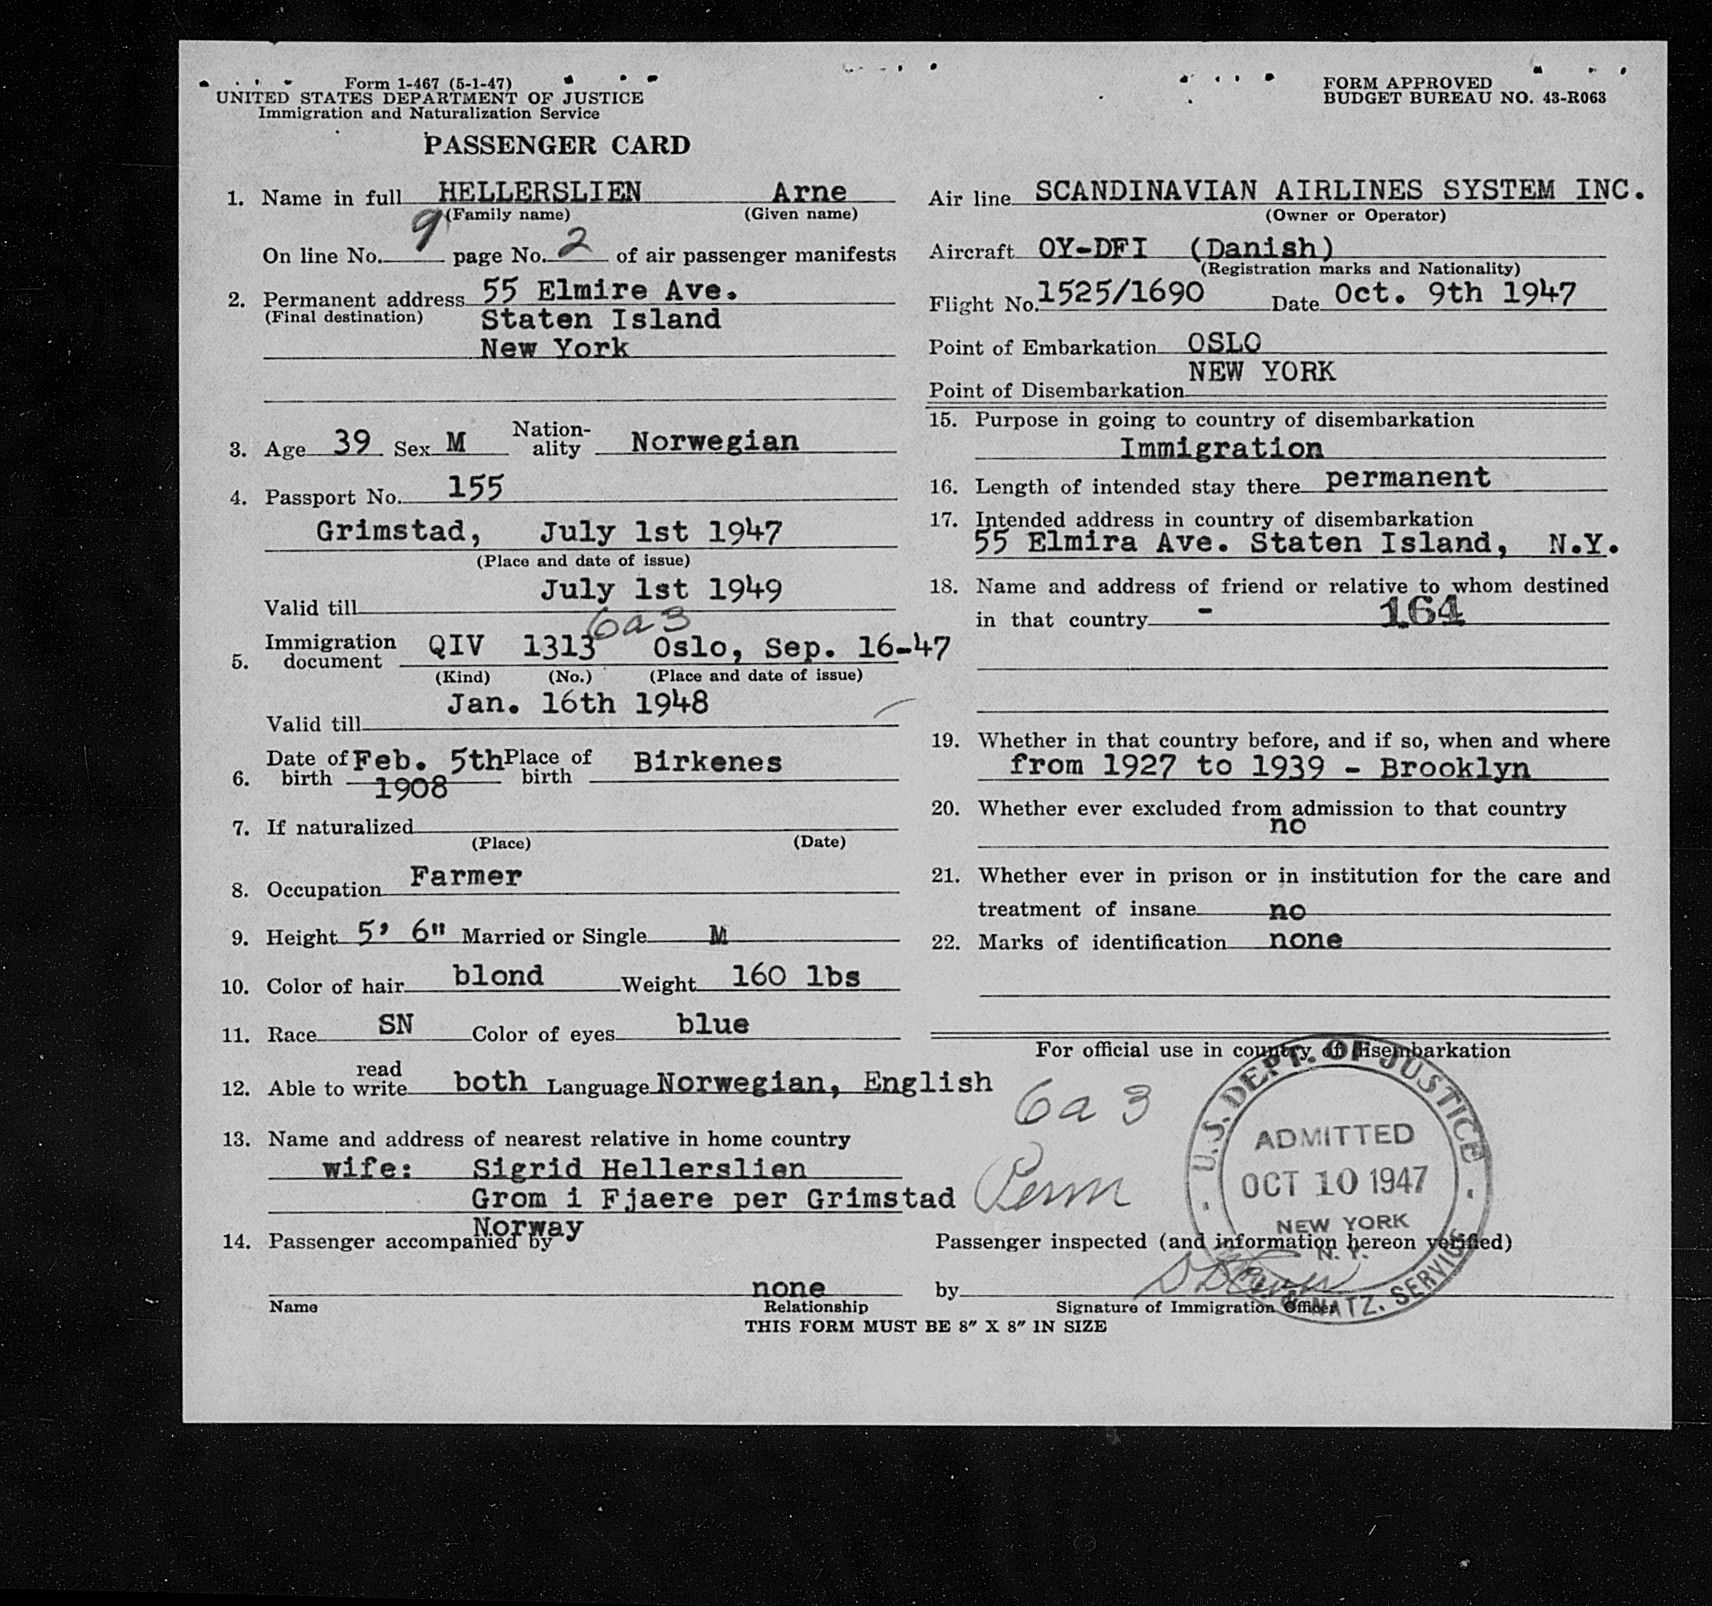 Form 1-467 (5-1-47)
UNITED STATES DEPARTMENT OF JUSTICE
Immigration and Naturalization Service
PASSENGER CARD
1. Name in full HELLERSLIEN Arne
(Family name) (Given name)
On line No. 9 page No. 2 of air passenger manifests
2. Permanent address 55 Elmire Ave.
(Final destination) Staten Island
New York
3. Age 39 Sex M Nation-ality Norwegian
4. Passport No. 155
Grimstad, July 1st 1947
(Place and date of issue)
July 1st 1949
Valid till
6a3
5. Immigration document QIV 1313 Oslo, Sep. 16-47
(Kind) (No.) (Place and date of issue)
Jan. 16th 1948
Valid till
6. Date of birth Feb. 5th 1908 Place of birth Birkenes
7. If naturalized
(Place) (Date)
8. Occupation Farmer
9. Height 5' 6" Married or Single M
10. Color of hair blond Weight 160 lbs
11. Race SN Color of eyes blue
12. Able to read write both Language Norwegian, English
13. Name and address of nearest relative in home country
wife: Sigrid Hellerslien
Grom i Fjaere per Grimstad
Norway
14. Passenger accompanied by
none
Name Relationship
FORM APPROVED
BUDGET BUREAU NO. 43-R063
Air line SCANDINAVIAN AIRLINES SYSTEM INC.
(Owner or Operator)
Aircraft OY-DFI (Danish)
(Registration marks and Nationality)
Flight No. 1525/1690 Date Oct. 9th 1947
Point of Embarkation OSLO
NEW YORK
Point of Disembarkation
15. Purpose in going to country of disembarkation
Immigration
16. Length of intended stay there permanent
17. Intended address in country of disembarkation
55 Elmira Ave. Staten Island, N.Y.
18. Name and address of friend or relative to whom destined
in that country - 164
19. Whether in that country before, and if so, when and where
from 1927 to 1939 - Brooklyn
20. Whether ever excluded from admission to that country
no
21. Whether ever in prison or in institution for the care and
treatment of insane no
22. Marks of identification none
For official use in country of disembarkation
6a3
Perm
U.S. DEPT. OF JUSTICE
ADMITTED
OCT 10 1947
NEW YORK
N. Y.
NATZ. SERVICE
Passenger inspected (and information hereon verified)
by
Signature of Immigration Officer
THIS FORM MUST BE 8" X 8" IN SIZE